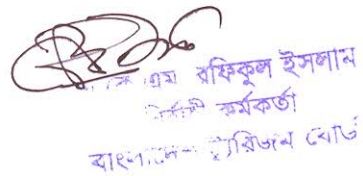 এম রফিকুল ইসলাম
কর্মকর্তা
বাংলাদেশ ট্যুরিজম বোর্ড